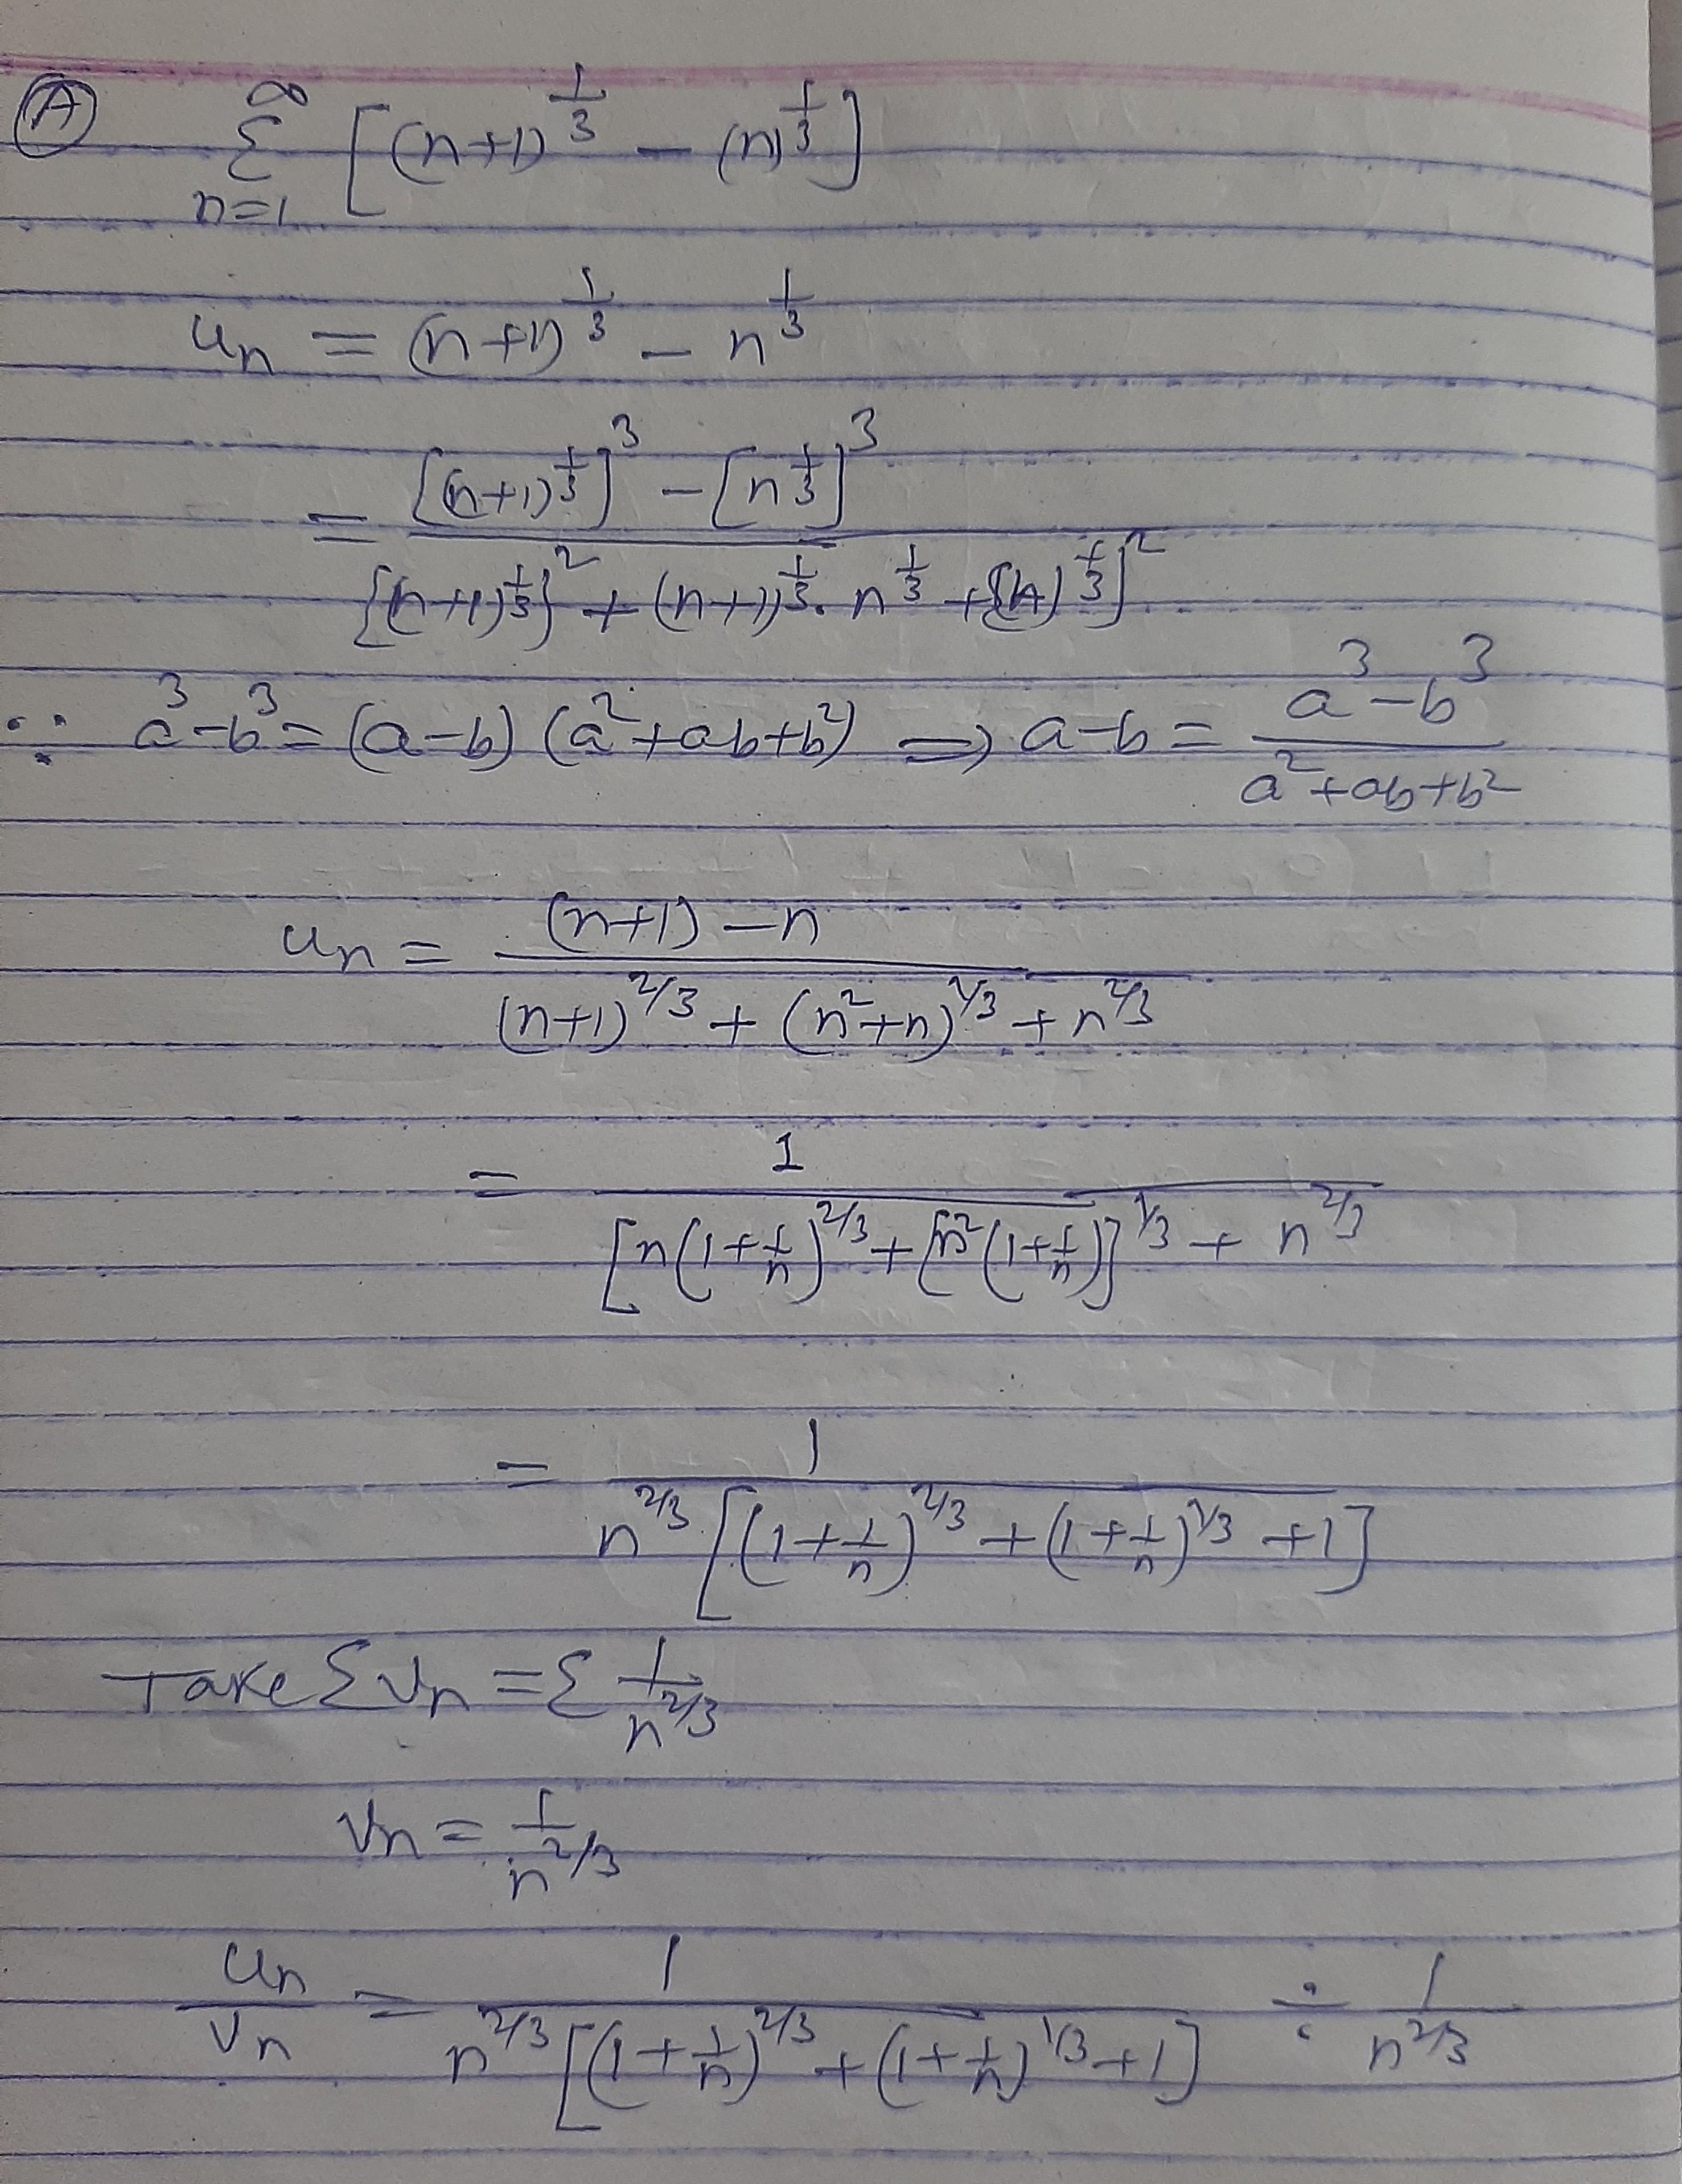 (A) ∞
Σ [(n+1)^{1/3} - (n)^{1/3}]
n=1
u_n = (n+1)^{1/3} - n^{1/3}
= ([(n+1)^{1/3}]^3 - [n^{1/3}]^3) / ({(n+1)^{1/3}}^2 + (n+1)^{1/3}. n^{1/3} + [(n)^{1/3}]^2)
∵ a^3-b^3 = (a-b) (a^2+ab+b^2) ⇒ a-b = (a^3-b^3) / (a^2+ab+b^2)
u_n = ((n+1) - n) / ((n+1)^{2/3} + (n^2+n)^{1/3} + n^{2/3})
= 1 / ([n(1+1/n)^{2/3} + [n^2(1+1/n)]^{1/3} + n^{2/3})
= 1 / (n^{2/3} [(1+1/n)^{2/3} + (1+1/n)^{1/3} + 1])
Take Σ v_n = Σ 1/n^{2/3}
v_n = 1/n^{2/3}
u_n/v_n = 1 / (n^{2/3} [(1+1/n)^{2/3} + (1+1/n)^{1/3} + 1]) ÷ 1/n^{2/3}